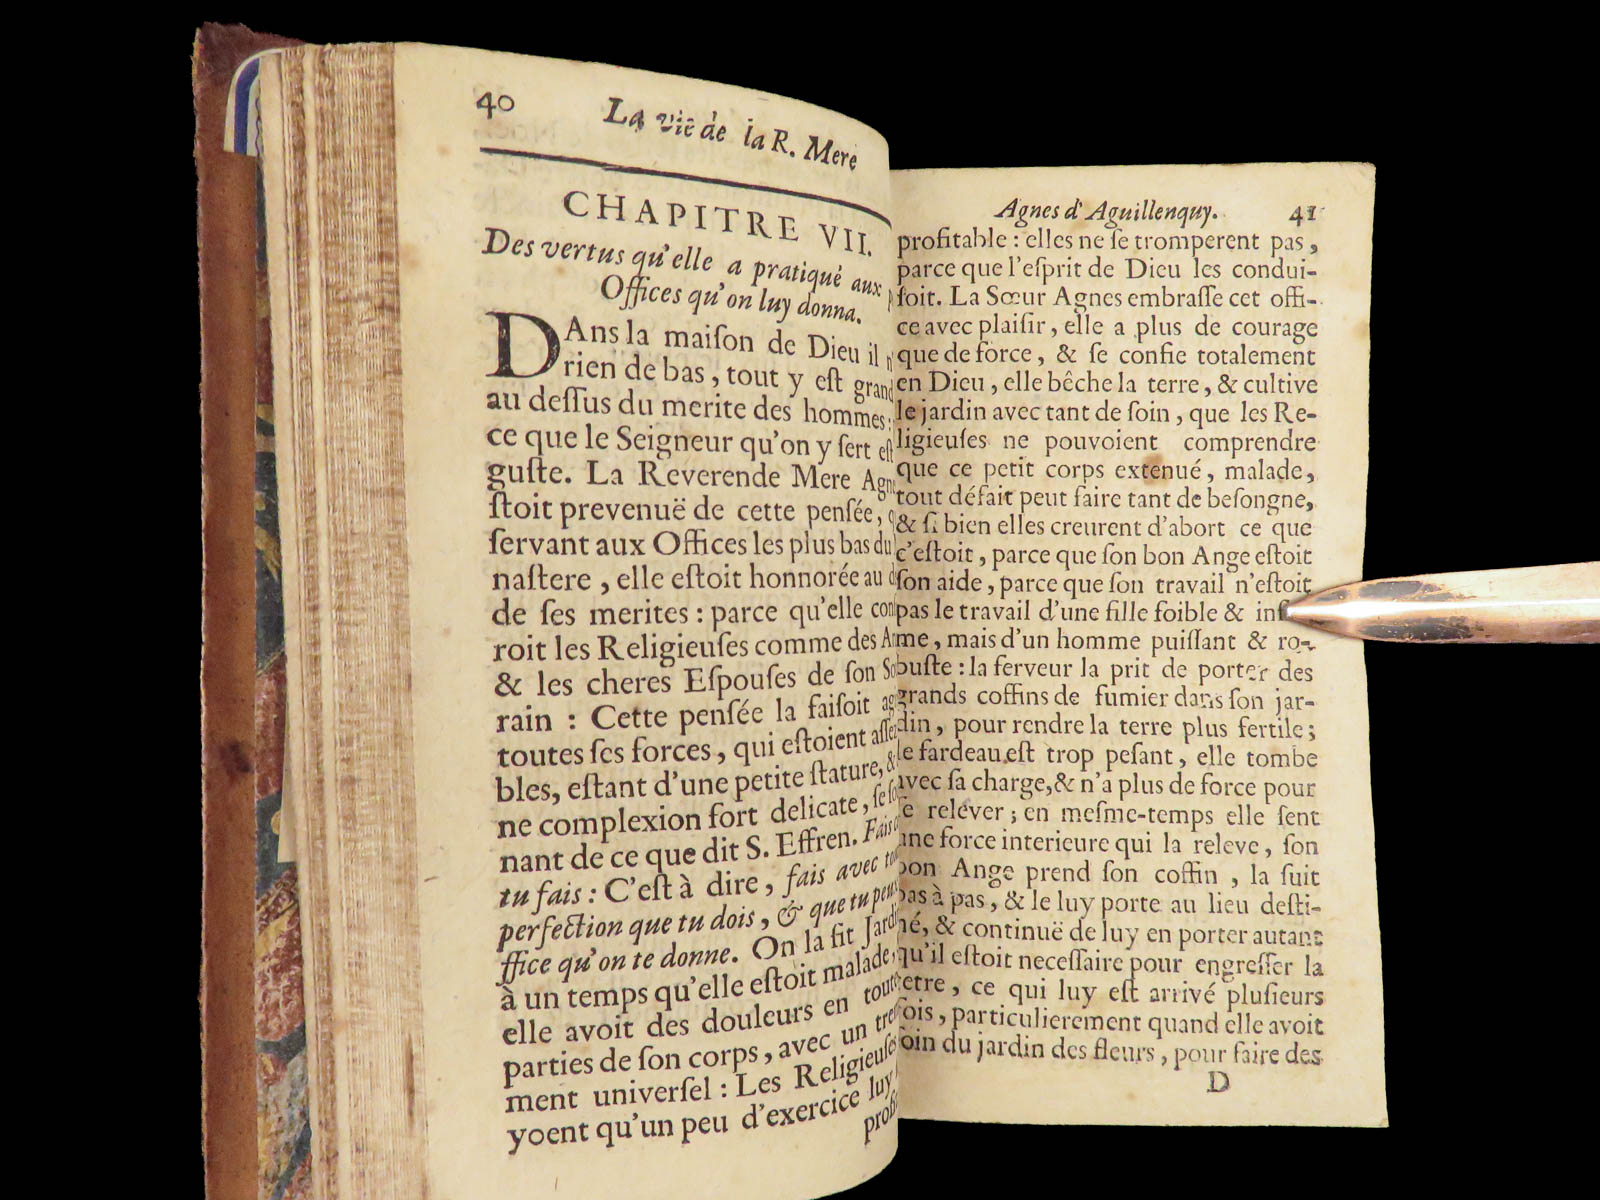 40 La vie de la R. Mere
CHAPITRE VII.
Des vertus qu'elle a pratiqué aux
Offices qu'on luy donna.
DAns la maiſon de Dieu il
rien de bas, tout y eſt grand
au deſſus du merite des hommes:
ce que le Seigneur qu'on y ſert eſt
guſte. La Reverende Mere Agn
ſtoit prevenuë de cette penſée,
ſervant aux Offices les plus bas du
naſtere, elle eſtoit honnorée au
de ſes merites: parce qu'elle con
roit les Religieuſes comme des
& les cheres Eſpouſes de ſon So
rain: Cette penſée la faiſoit ag
toutes ſes forces, qui eſtoient aſſe
bles, eſtant d'une petite ſtature, &
ne complexion fort delicate, ſe ſo
nant de ce que dit S. Effren. Fais
tu fais: C'eſt à dire, fais avec to
perfection que tu dois, & que tu peux
ffice qu'on te donne. On la fit Jardi
à un temps qu'elle eſtoit malade,
elle avoit des douleurs en toute
parties de ſon corps, avec un tre
ment univerſel: Les Religieuſe
yoent qu'un peu d'exercice luy
profi
Agnes d'Aguillenquy. 41
profitable: elles ne ſe tromperent pas,
parce que l'eſprit de Dieu les condui-
ſoit. La Sœur Agnes embraſſe cet offi-
ce avec plaiſir, elle a plus de courage
que de force, & ſe confie totalement
en Dieu, elle bêche la terre, & cultive
le jardin avec tant de ſoin, que les Re-
ligieuſes ne pouvoient comprendre
que ce petit corps extenué, malade,
tout défait peut faire tant de beſongne,
& ſi bien elles creurent d'abort ce que
c'eſtoit, parce que ſon bon Ange eſtoit
ſon aide, parce que ſon travail n'eſtoit
pas le travail d'une fille foible & inf
me, mais d'un homme puiſſant & ro-
buſte: la ferveur la prit de porter des
grands coffins de fumier dans ſon jar-
din, pour rendre la terre plus fertile;
le fardeau eſt trop peſant, elle tombe
avec ſa charge, & n'a plus de force pour
ſe relever; en meſme-temps elle ſent
une force interieure qui la releve, ſon
bon Ange prend ſon coffin, la ſuit
pas à pas, & le luy porte au lieu deſti-
né, & continuë de luy en porter autant
qu'il eſtoit neceſſaire pour engreſſer la
terre, ce qui luy eſt arrivé pluſieurs
fois, particulierement quand elle avoit
ſoin du jardin des fleurs, pour faire des
D